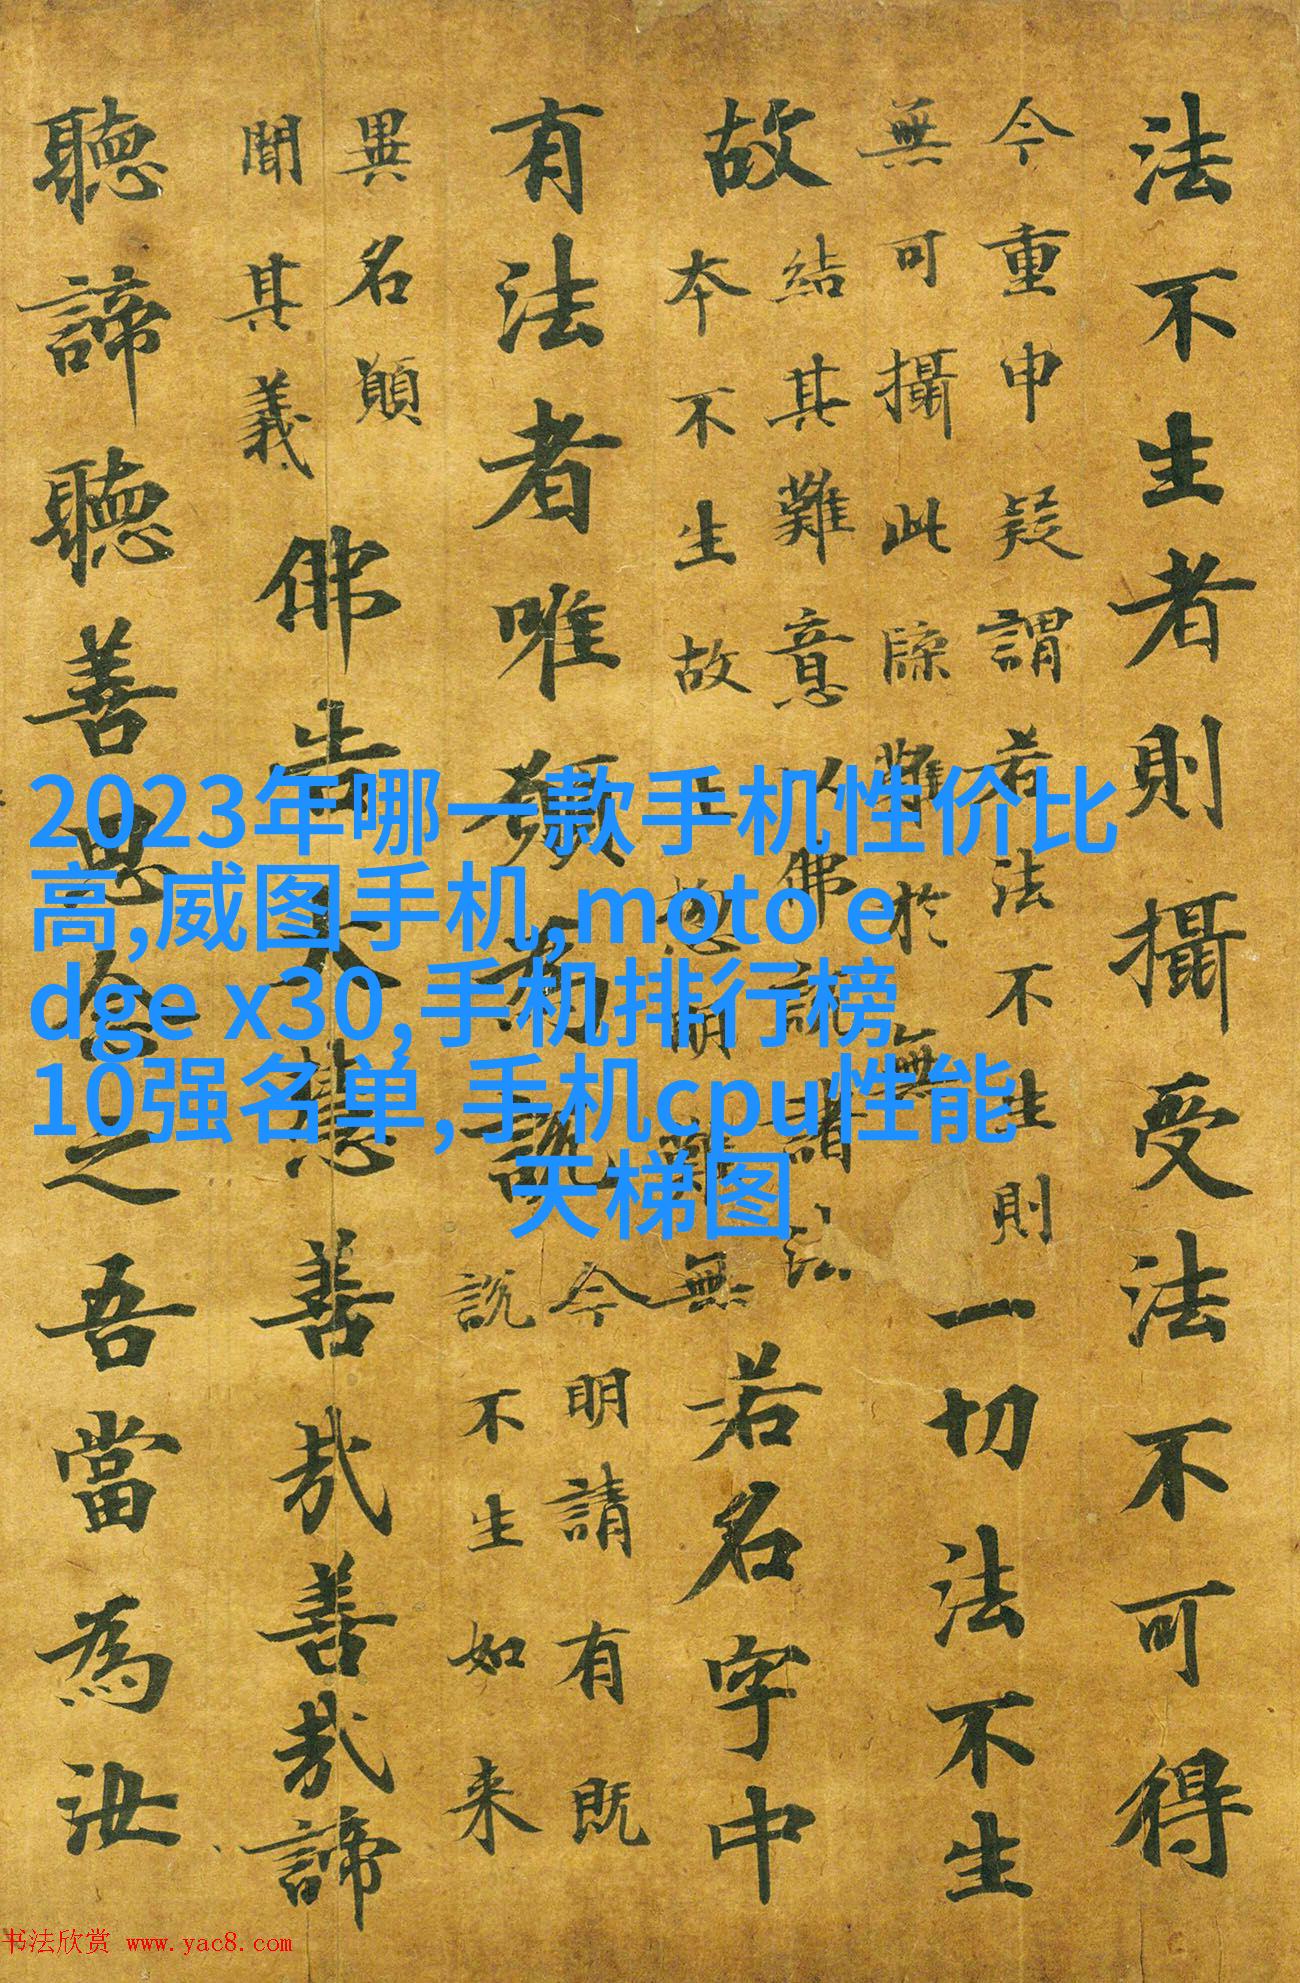 法不生者則攝受法不可得
今重申疑謂若法不生則
無可攝此牒難於無
一切法不生
故
結其難意以佛說諸法
本不生故惣明難無
若名字中
有法者唯願為說
今明請有既
説不生如来
異名願
聞其義
佛告大慧善哉善哉諦
聽諦聽善思念之吾當為汝
2023年哪一款手机性价比
高,威图手机,moto e
dge x30,手机排行榜
10强名单,手机cpu性能
天梯图
书法欣赏 www.yac8.com